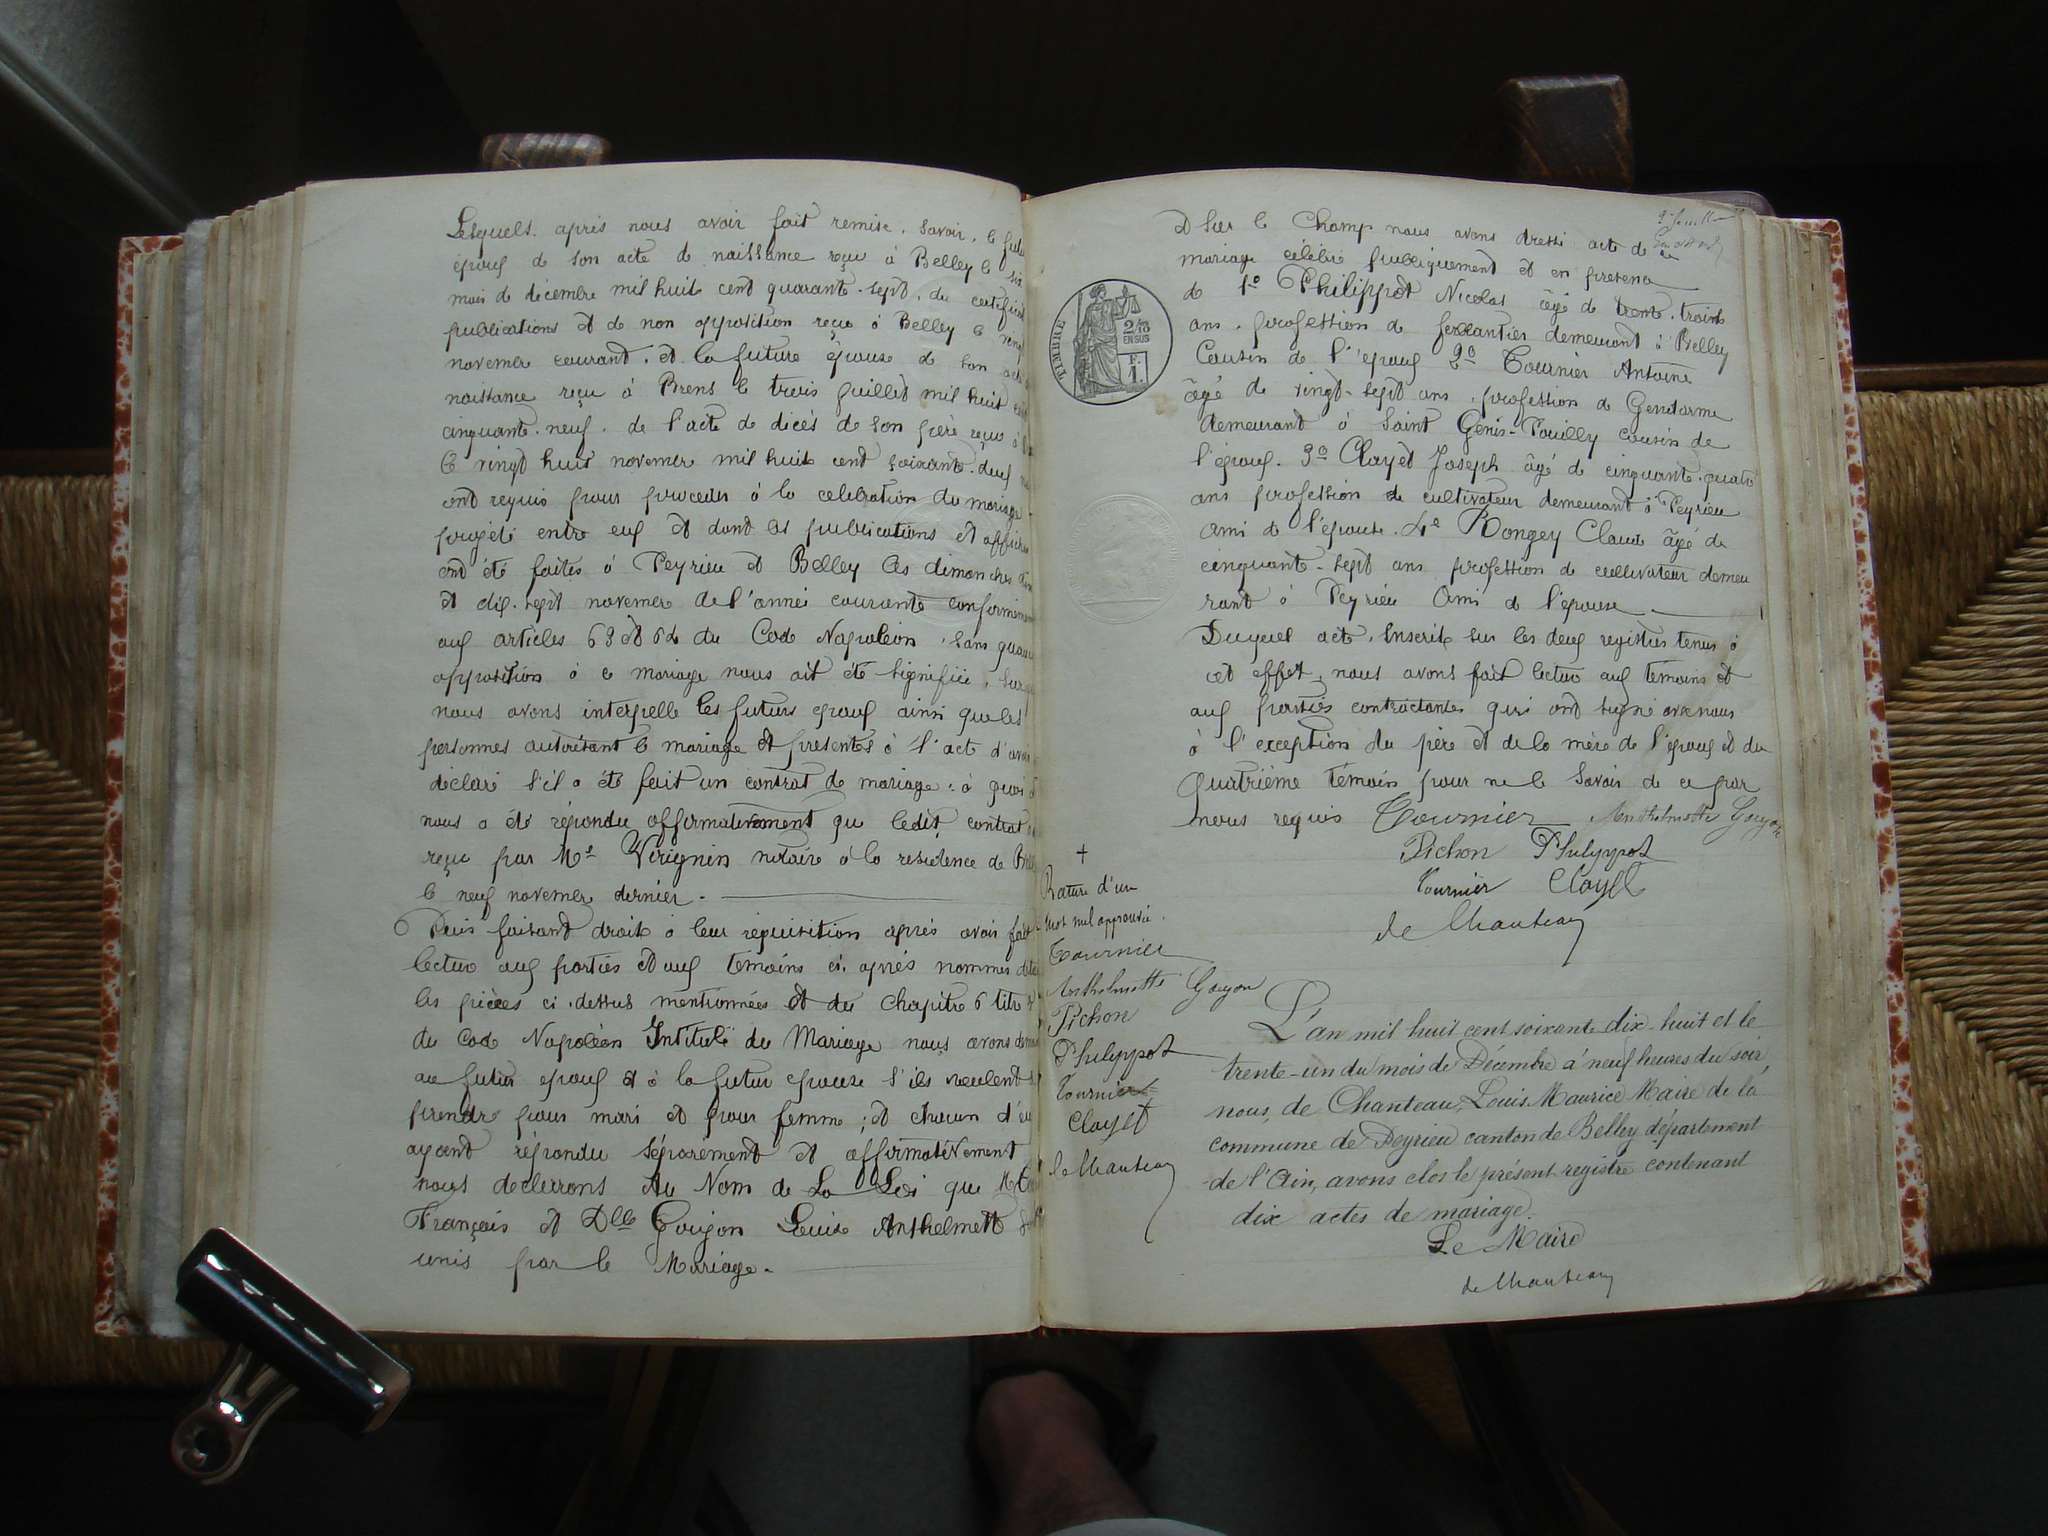 Lesquels après nous avoir fait remise, savoir, le futur
époux de son acte de naissance reçu à Belley le six
mois de décembre mil huit cent quarante-sept, du certificat
publications et de non opposition reçu à Belley le vingt
novembre courant, et la future épouse de son acte
naissance reçu à Brens le trois juillet mil huit cent
cinquante-neuf, de l'acte de décès de son père reçu à
le vingt huit novembre mil huit cent soixante-deux
ont requis pour proceder à la celebration du mariage
projété entre eux et dont les publications et affiches
ont été faites à Peyrieu et Belley les dimanches
et dix-sept novembre de l'année courante conformément
aux articles 63 et 64 du Code Napoléon, sans qu'aucune
opposition à ce mariage nous ait été signifiée, sur quoi
nous avons interpellé les futurs époux ainsi que les
personnes autorisant le mariage et présentes à l'acte d'avoir
déclaré s'il a été fait un contrat de mariage : à quoi
nous a été répondu affirmativement que ledit contrat
reçu par Me Virignin notaire à la residence de
le neuf novembre dernier.
Puis faisant droit à leur réquisition après avoir fait
lecture aux parties et aux témoins ci-après nommés
les pièces ci-dessus mentionnées et du chapitre 6 titre
du Code Napoléon Intitulé du Mariage nous avons
au futur epoux et à la futur epouse s'ils veulent
prendre pour mari et pour femme ; et chacun d'eux
ayant répondu séparement et affirmativement
nous declarons Au Nom de La Loi que Mr
François et Dlle Goujon Louise Anthelmette
unis par le Mariage.
Et sur le Champ nous avons dressé acte de ce
mariage célébré publiquement et en presence
de 1º Philippot Nicolas âgé de trente-trois
ans, profession de ferblantier demeurant à Belley
Cousin de l'époux 2º Tournier Antoine
âgé de vingt-sept ans, profession de Gendarme
demeurant à Saint Génis-Pouilly cousin de
l'époux. 3º Clayet Joseph âgé de cinquante-quatre
ans profession de cultivateur demeurant à Peyrieu
Ami de l'épouse. 4e Rongey Claude âgé de
cinquante-sept ans profession de cultivateur demeu
rant à Peyrieu Ami de l'épouse
Duquel acte, Inscrit sur les deux registres tenus à
cet effet, nous avons fait lecture aux témoins et
aux parties contractantes qui ont signé avec nous
à l'exception du père et de la mère de l'époux et du
quatrième témoin pour ne le savoir de ce par
nous requis Tournier Anthelmette Goujon
Pichon Philippot
Tournier Clayet
de Chanteau
TIMBRE
2/10
EN SUS
F.
1.
+
Rature d'un
mot nul approuvée.
Tournier
Anthelmette Goujon
Pichon
Philippot
Tournier
Clayet
de Chanteau
L'an mil huit cent soixante dix-huit et le
trente-un du mois de Décembre à neuf heures du soir
nous, de Chanteau, Louis Maurice Maire de la
commune de Peyrieu canton de Belley département
de l'Ain, avons clos le présent registre contenant
dix actes de mariage.
Le Maire
de Chanteau